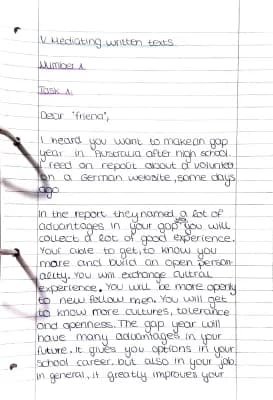 V Mediating written texts
Number 1
Task 1:
Dear "friend",
I heard you want to make an gap
year in Australia after high school.
I read on report about a volunter
on a German website, some days
ago.
In the report they named a lot of
advantages in your gap you will
collect a lot of good experience.
Your able to get, to know you
more and build an open person-
ality. You will exchange cultral
experience. You will be more openly
to new fellow men. You will get
to know more cultures, tolerance
and openness. The gap year will
have many advantages in your
future. It gives you options in your
school career, but also in your job
in general, it greatly improves your